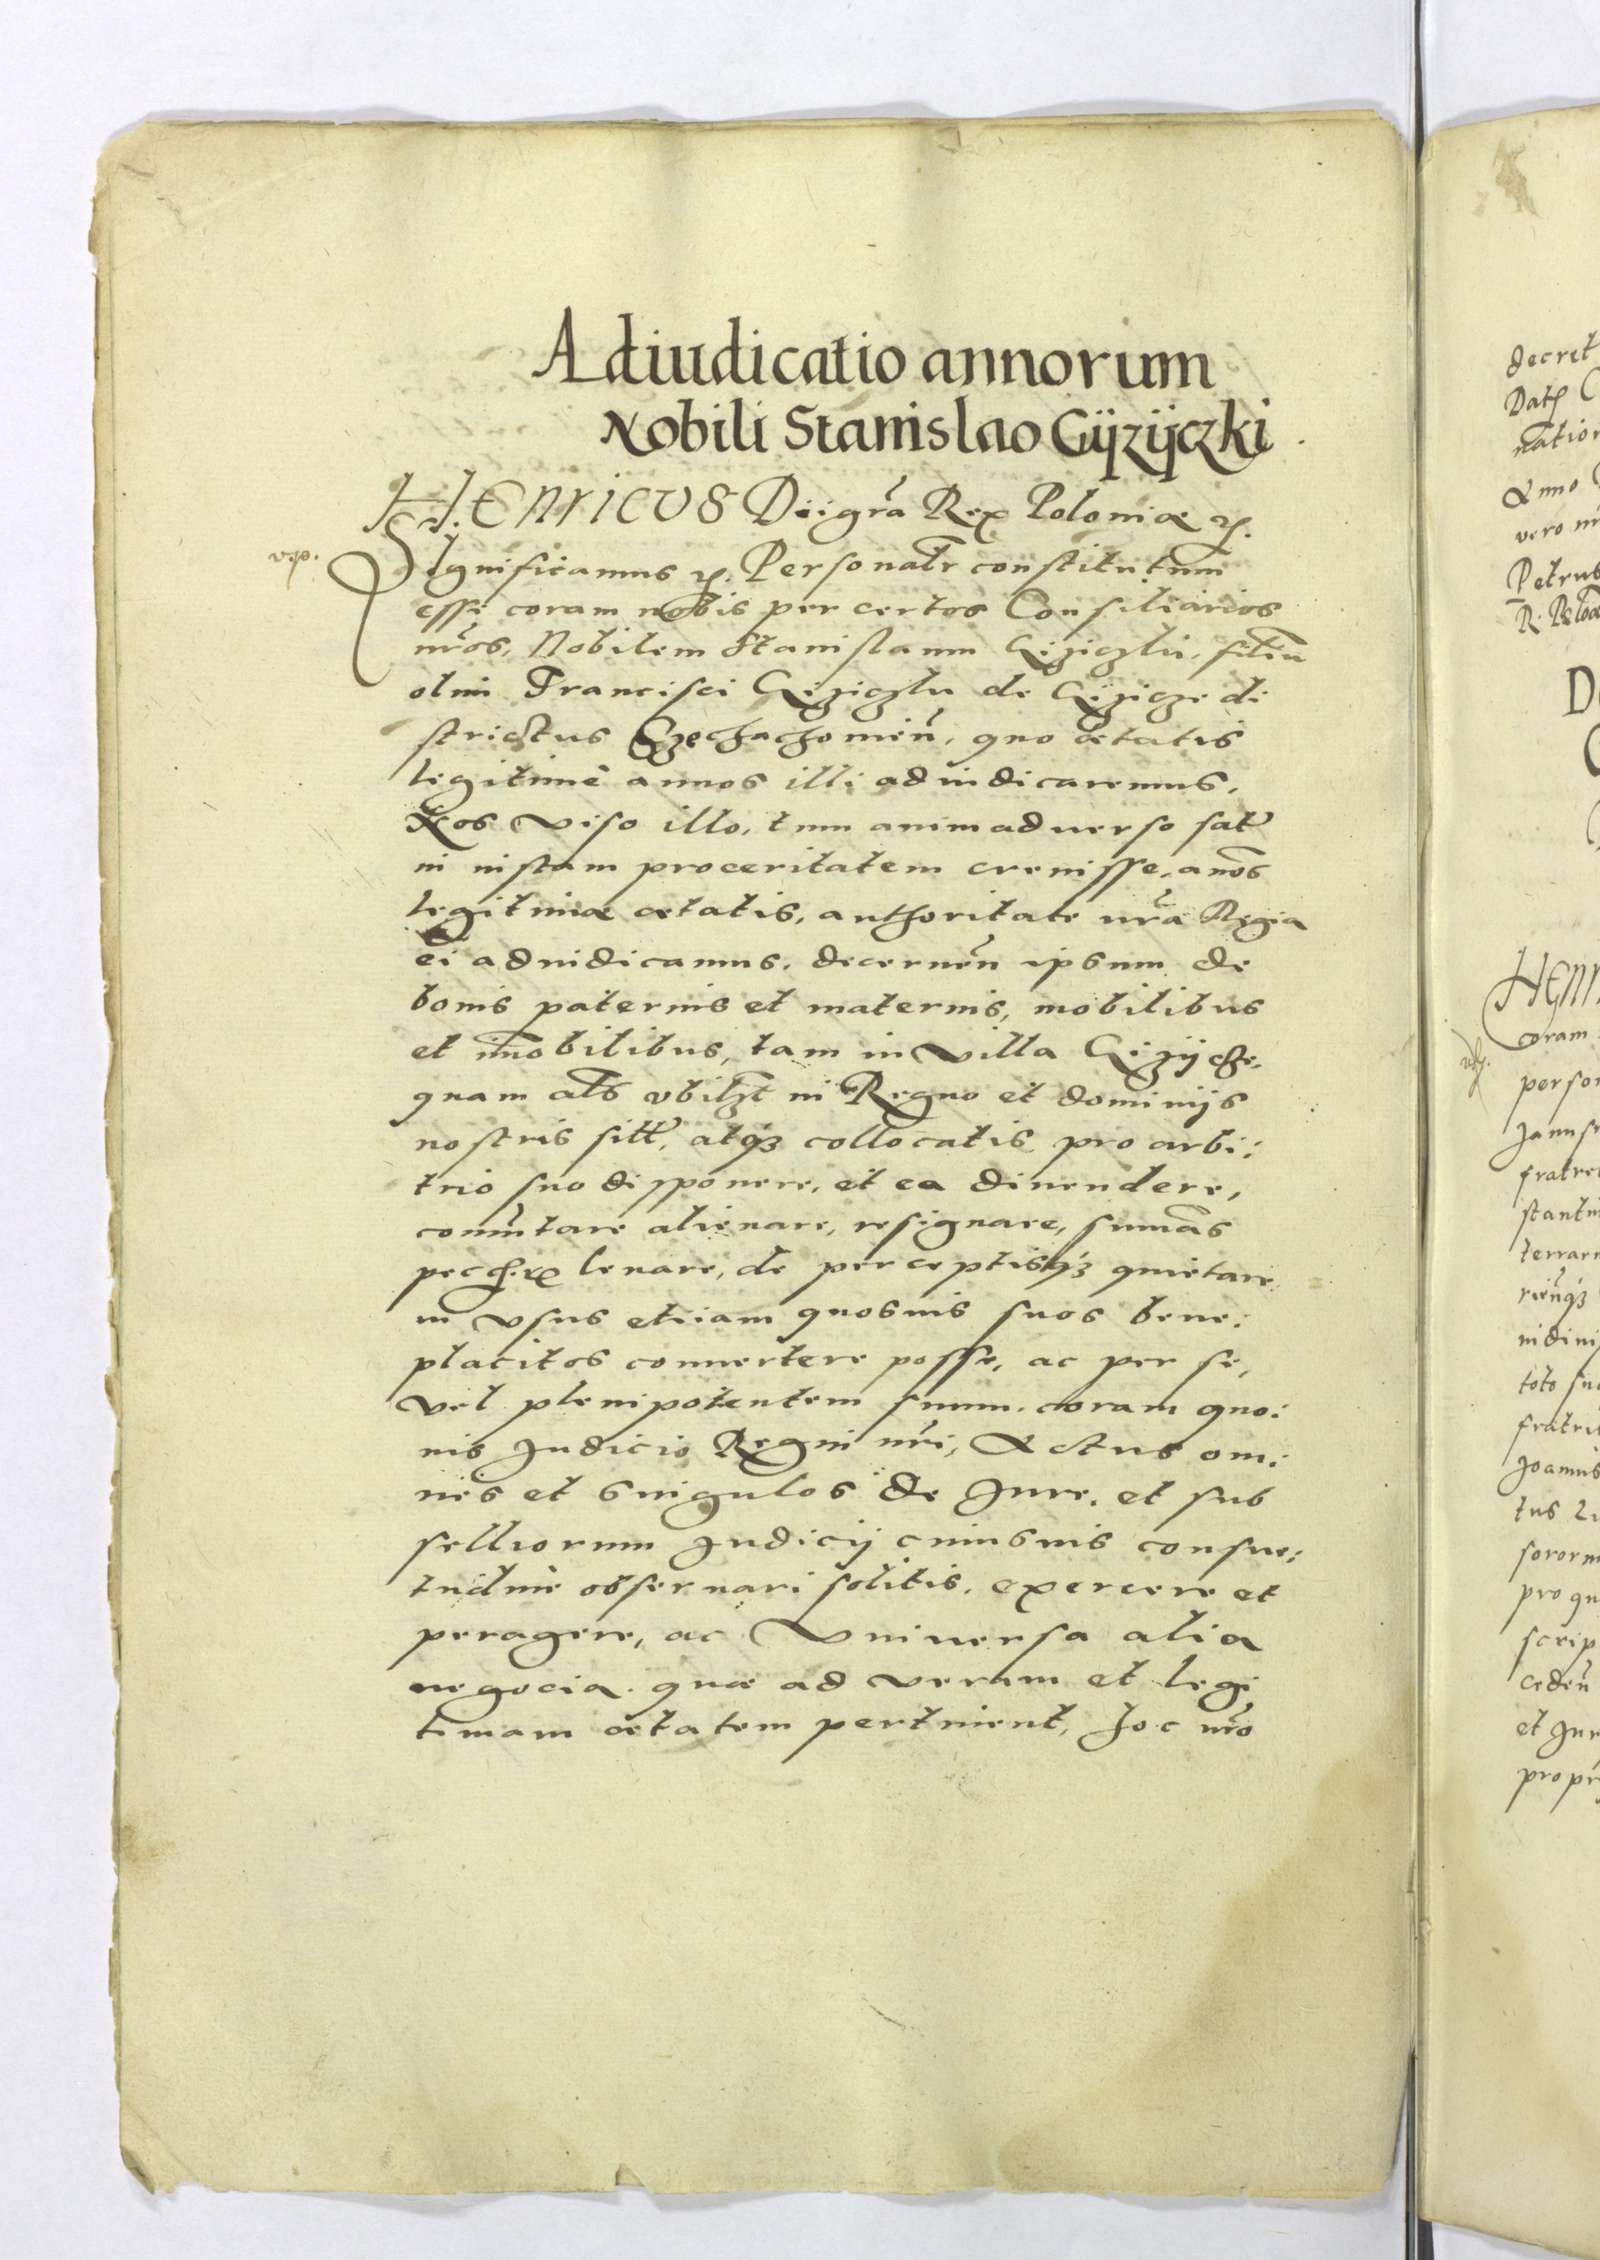 Adiudicatio annorum
Nobili Stanislao Giÿzÿczki
HENRICUS Dei gra Rex Poloniæ
Significamus Personalr constitutum
esse coram nobis per certos Consiliarios
nros, Nobilem Stanislaum Giziczki, filiu
olim Francisci Giziczki de Gizicze di
strictus Czechachowien, quo ætatis
legitime annos illi adiudicaremus.
Nos viso illo, tum animaduerso satis
in iustam proceritatem creuisse, anos
legitimæ ætatis, authoritate nra Regia
ei adiudicamus. decernen ipsum de
bonis paternis et maternis, mobilibus
et imobilibus, tam in villa Gizÿcze,
quam als vbilzt in Regno et dominijs
nostris sitis, atqz collocatis pro arbi:
trio suo disponere, et ea diuendere,
comutare alienare, resignare, sumas
pecch. leuare, de perceptisqz quietare
in vsus etiam quosuis suos bene:
placitos conuertere posse, ac per se,
vel plenipotentem suum. coram quo:
uis Judicio Regni nri, Actus om:
nes et singulos de Jure, et sub
selliorum Judicij cuiusuis consue:
tudine obseruari solitis, exercere et
peragere, ac Vniuersa alia
negocia. quæ ad veram et legi
timam ætatem pertinent, hoc nro
decret
natior
Anno
vero
Petrus
HENR
coram
person
fratre
stanti
terrar
toto su
fratri
tus
soror
pro qu
scrip
ceden
et Jur